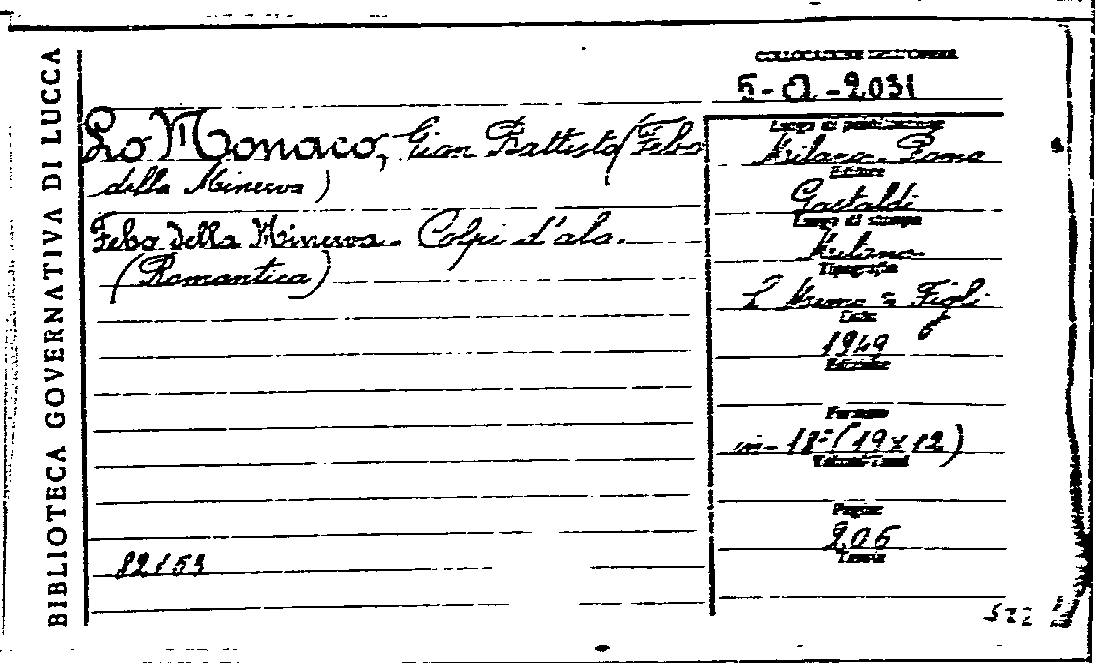 BIBLIOTECA GOVERNATIVA DI LUCCA
COLLOCAZIONE DELL'OPERA
5-Q-2031
Lo Monaco, Gian Battista (Febo
della Minerva)
Febo della Minerva - Colpi d'ala.
(Romantica)
82153
Luogo di pubblicazione
Milano - Roma
Editore
Gastaldi
Luogo di stampa
Milano
Tipografia
& Figli
Data
1949
Edizione
Formato
in-18° (19x12)
Pagine
206
Tavole
522